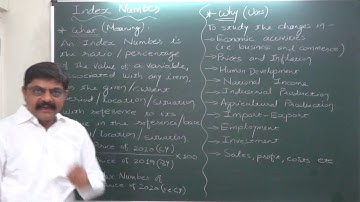 Index Number
* What (Meaning):
An Index Number is
the ratio / percentage
of the value of a variable,
associated with any item,
the given/current
period/location/situation
with reference to its
in the reference/base
/location/situation.
Price of 2020 (CY)
of 2019 (BY) × 100
Index Number of
Price of 2020
* Why (Uses):
To study the changes in -
→ Economic activities
(i.e. business and commerce)
→ Prices and Inflation
→ Human Development
→ National Income
→ Industrial Production
→ Agricultural Production
→ Import-Export
→ Employment
→ Investment
→ Sales, profit, costs etc